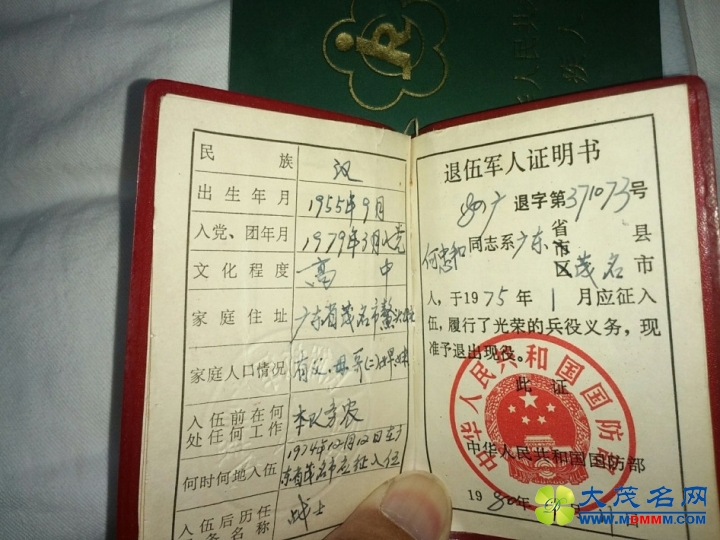 民族 汉
出生年月 1955年9月
入党、团年月 1979年3月入党
文化程度 高中
家庭住址 广东省茂名市鳌头
家庭人口情况 有父、母、哥(二)
入伍前在何处任何工作 本队务农
何时何地入伍 1974年12月12日在广东省茂名市应征入伍
入伍后历任
名称 战士
退伍军人证明书
80广退字第371073号
何忠和同志系广东省市区茂名县市
人,于1975年1月应征入
伍,履行了光荣的兵役义务,现
准予退出现役。
此证
中华人民共和国国防部
1980年
中华人民共和国国防部
大茂名网
www.MDMMM.com